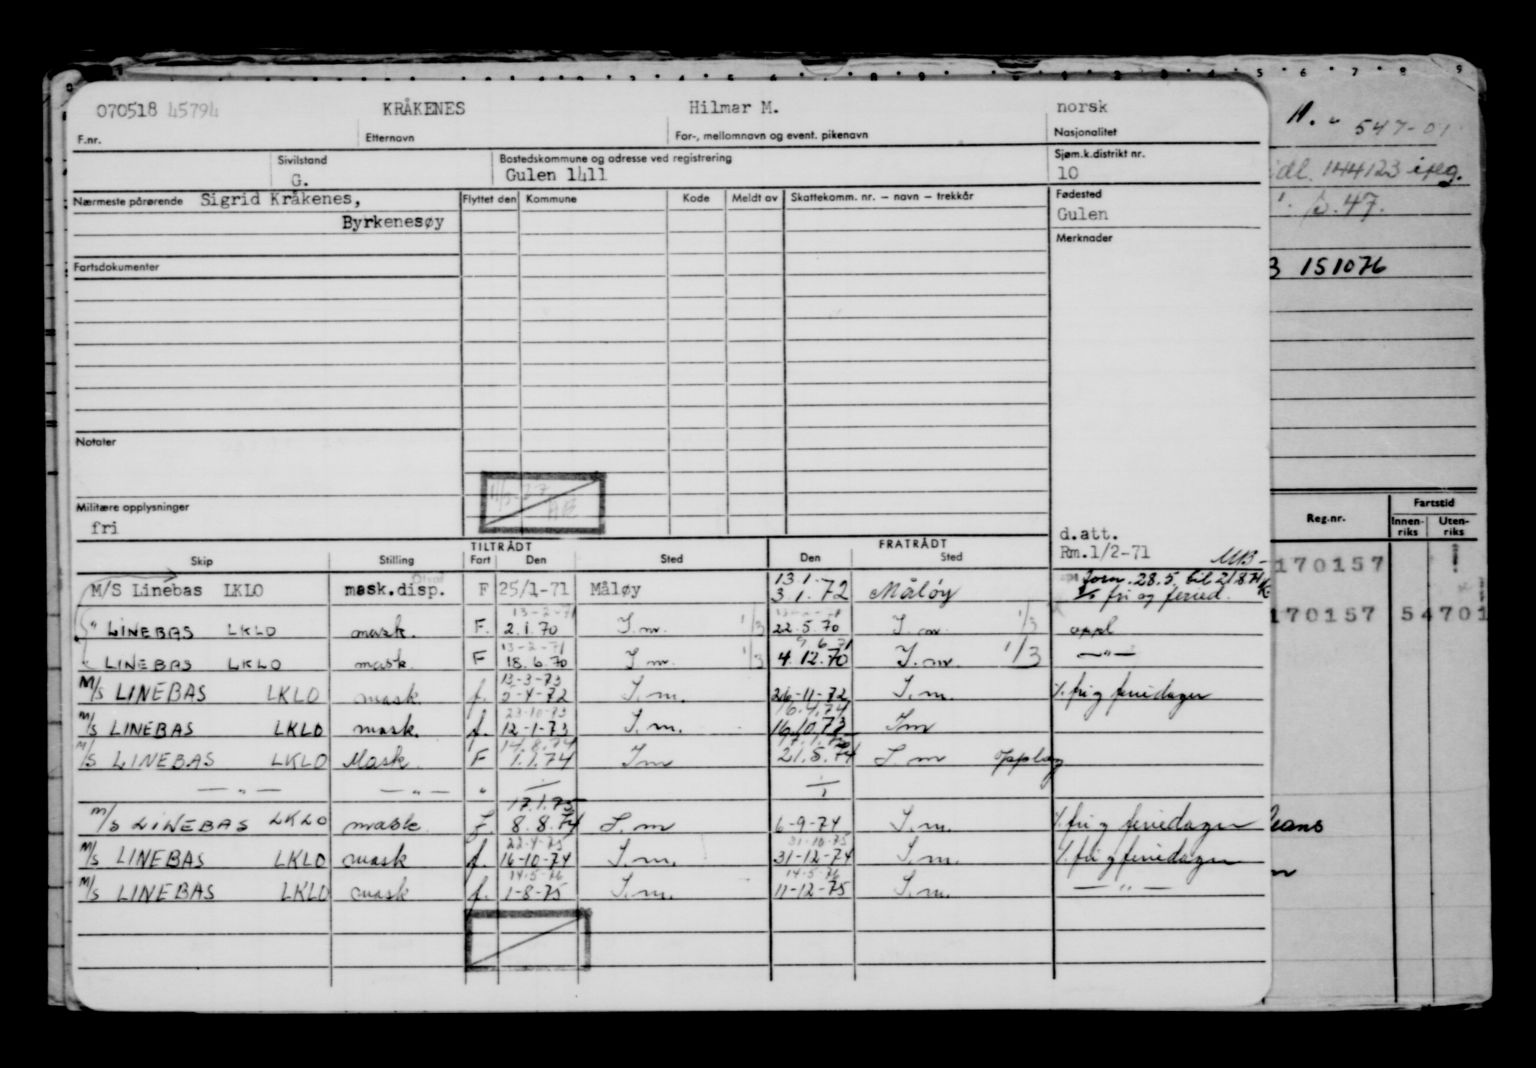 070518 45794 KRÅKENES Hilmar M. norsk
F.nr. Etternavn For-, mellomnavn og event. pikenavn Nasjonalitet
Sivilstand Bostedskommune og adresse ved registrering Sjøm.k.distrikt nr.
G. Gulen 1411 10
Nærmeste pårørende Sigrid Kråkenes, Flyttet den Kommune Kode Meldt av Skattekomm. nr. — navn — trekkår Fødested
Byrkenesøy Gulen
Merknader
Fartsdokumenter
Notater
Militære opplysninger
fri
d.att.
Rm.1/2-71
TILTRÅDT FRATRÅDT
Skip Stilling Fort Den Sted Den Sted
M/S Linebas LKLO mask.disp. F 25/1-71 Måløy 13.1. 3.1.72 Måløy forn. 28.5. til 21.8.71
fri og feried.
13-2-71
" LINEBAS LKLO mask. F. 2.1.70 I.m. 1/3 22.5.70 I.m. 1/3 oppl
13-2-71
LINEBAS LKLO mask F 18.6.70 I.m. 1/3 4.12.70 I.m. 1/3 — " —
13-3-73
M/S LINEBAS LKLO mask. f. 2-4-72 I.m. 26-11-72 I.m. /. fri g feriedager
23-10-73 16.4.74
M/S LINEBAS LKLO mask. f. 12-1-73 I.m. 16.10.73 Im
14.8.74
M/S LINEBAS LKLO Mask. F 1.1.74 Im 21.5.74 I m opplag
— " — — " — "
17.1.75
M/S LINEBAS LKLO mask. f. 8.8.74 I.m 6-9-74 I.m. /. fri g feriedager
22-4-75 31-10-75
M/S LINEBAS LKLO mask f. 16-10-74 I.m. 31-12-74 I.m. /. fri g feriedager
14-5-76 14-5-76
M/S LINEBAS LKLO mask f. 1-8-75 I.m. 11-12-75 I.m. — " —
N. 547-01
144123 i reg.
s.47.
3 151076
Reg.nr. Fartstid
Innen-riks Uten-riks
170157
170157 54701